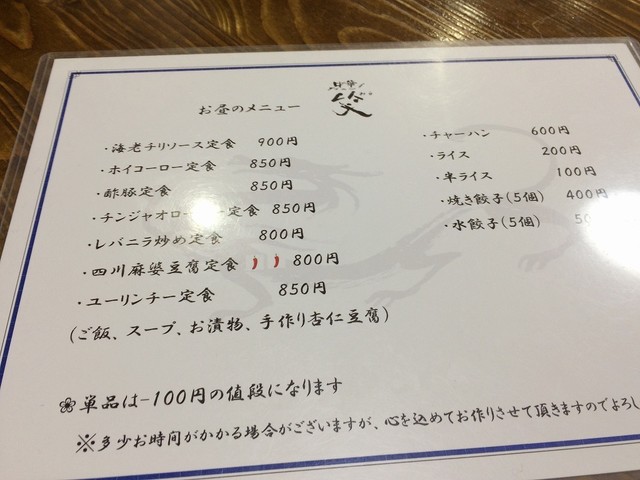 笑
お昼のメニュー
・海老チリソース定食 900円
・ホイコーロー定食 850円
・酢豚定食 850円
・チンジャオロー 定食 850円
・レバニラ炒め定食 800円
・四川麻婆豆腐定食 800円
・ユーリンチー定食 850円
(ご飯、スープ、お漬物、手作り杏仁豆腐)
・チャーハン 600円
・ライス 200円
・半ライス 100円
・焼き餃子(5個) 400円
・水餃子(5個) 50
単品は-100円の値段になります
※多少お時間がかかる場合がございますが、心を込めてお作りさせて頂きますのでよろし